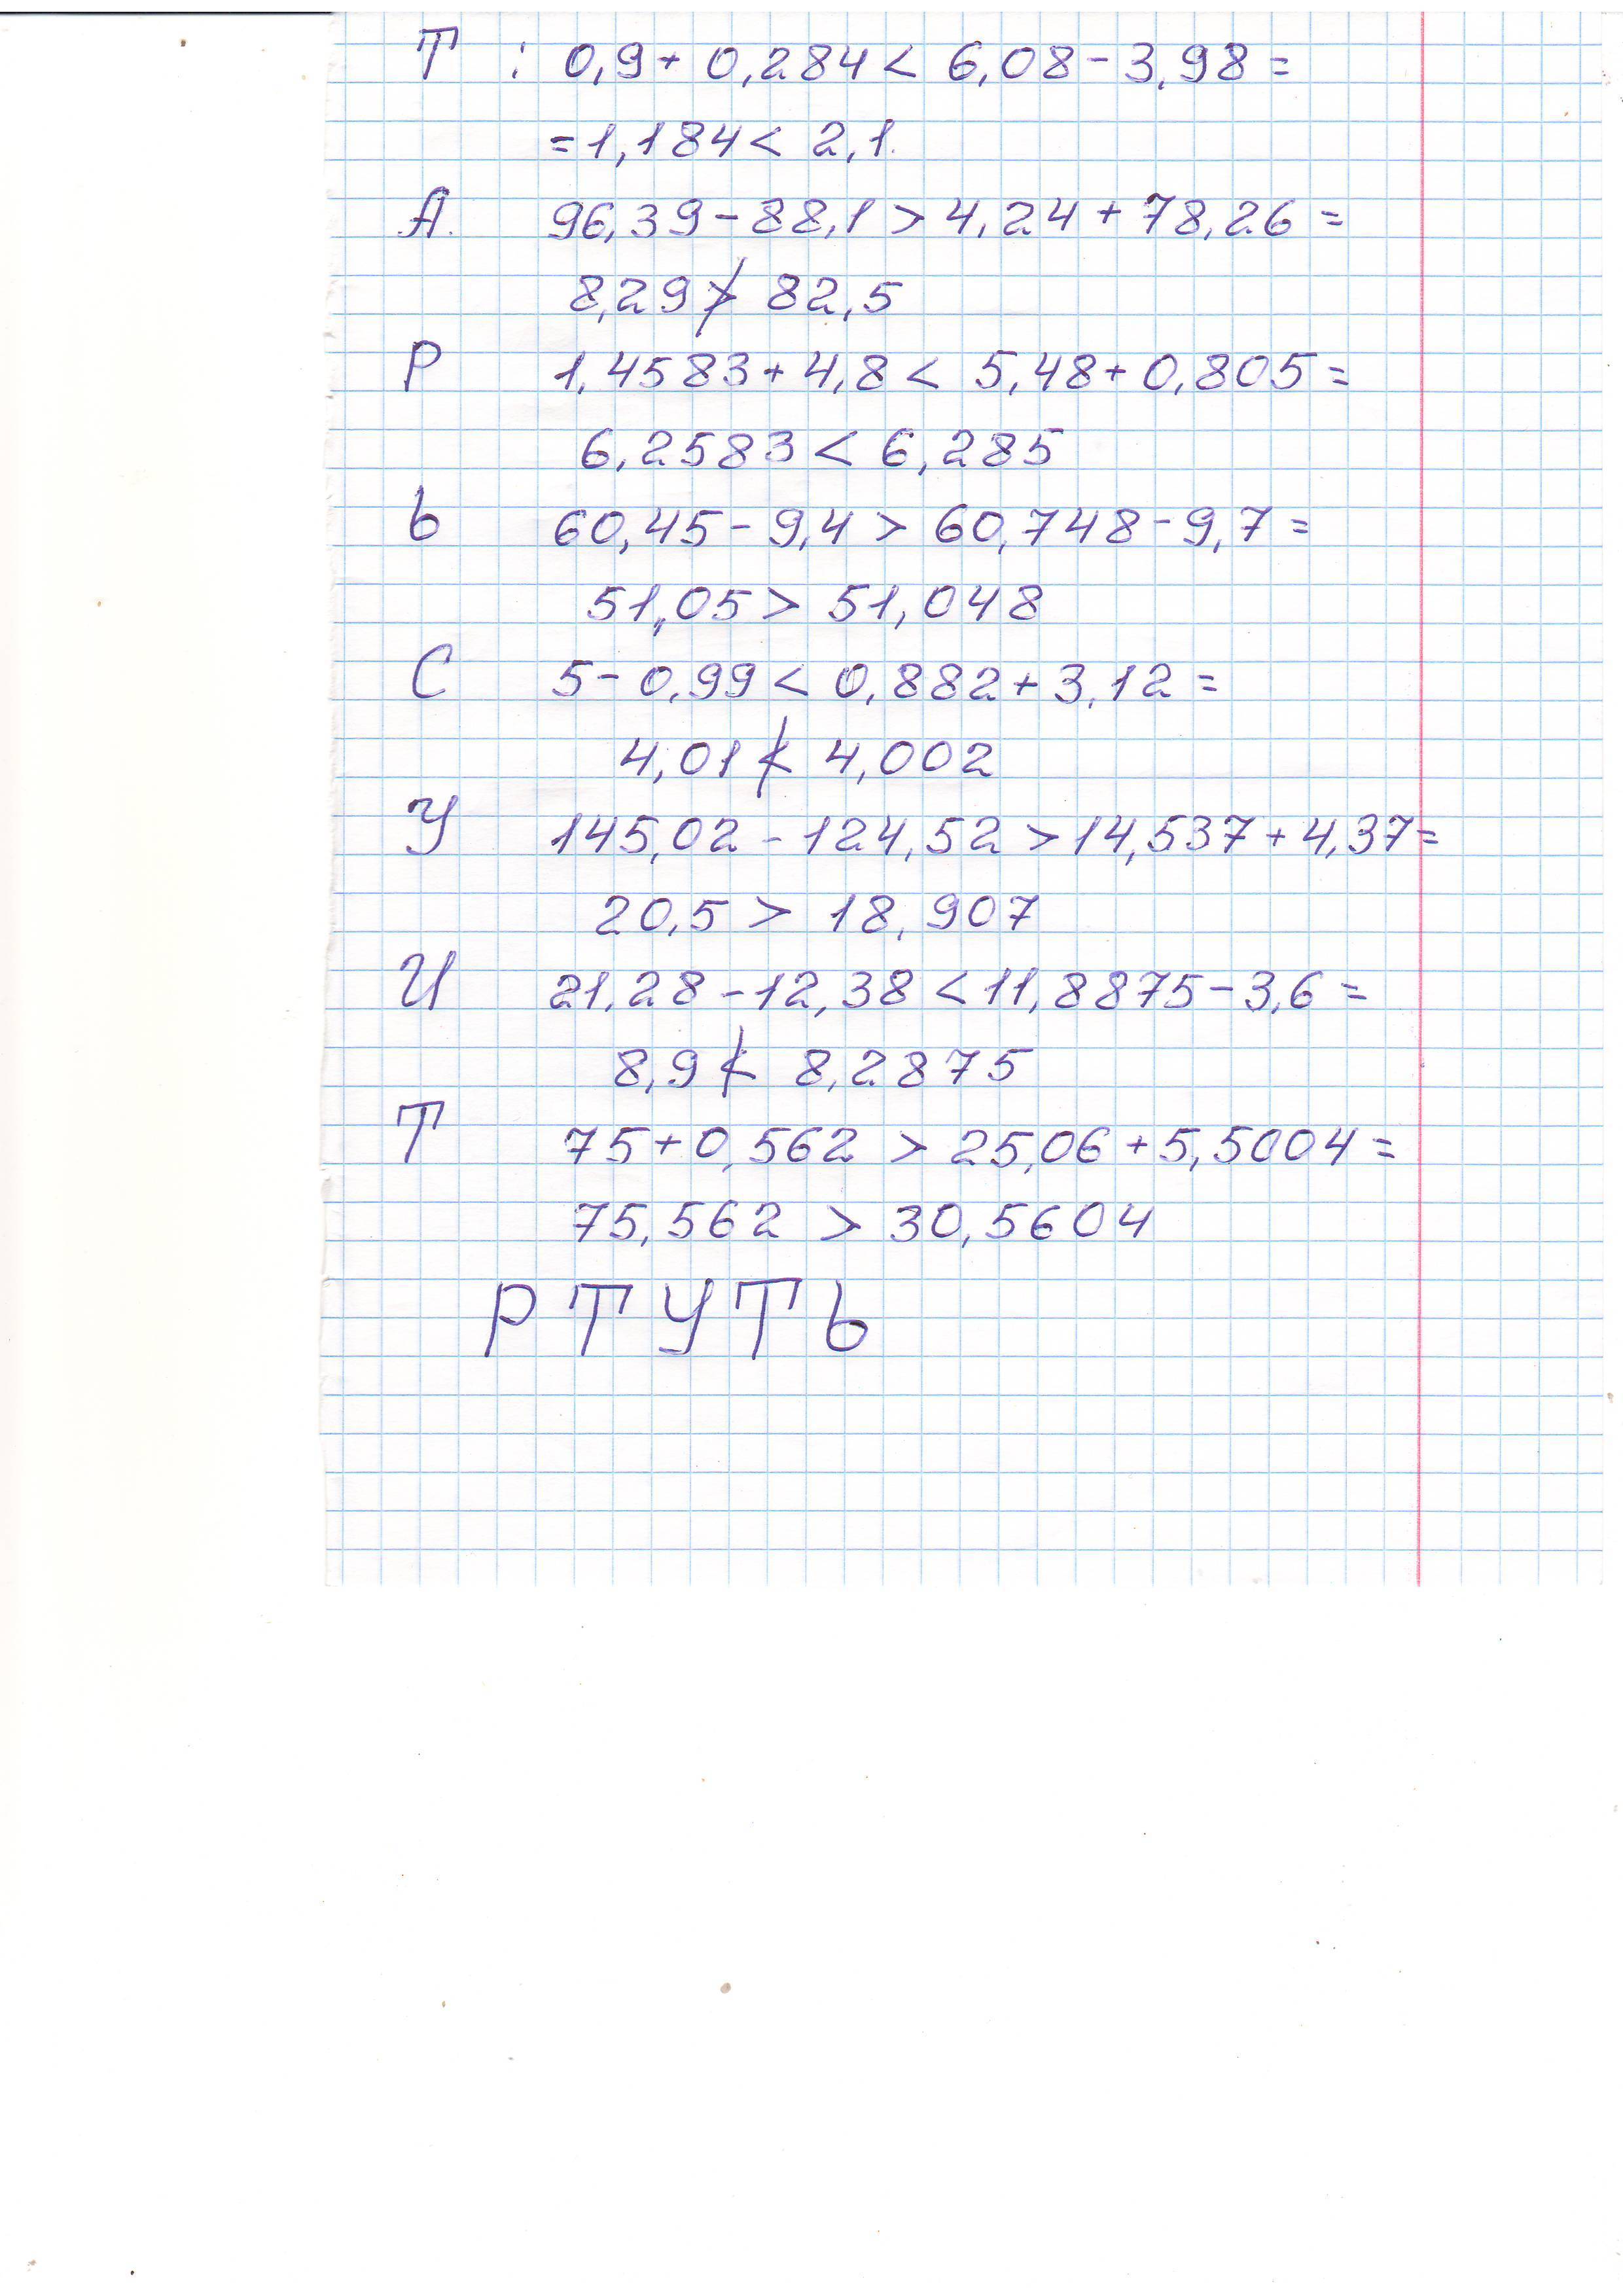 Т : 0,9 + 0,284 < 6,08 - 3,98 =
= 1,184 < 2,1.
А. 96,39 - 88,1 > 4,24 + 78,26 =
8,29 ≯ 82,5
Р 1,4583 + 4,8 < 5,48 + 0,805 =
6,2583 < 6,285
Ь 60,45 - 9,4 > 60,748 - 9,7 =
51,05 > 51,048
С 5 - 0,99 < 0,882 + 3,12 =
4,01 ≮ 4,002
У 145,02 - 124,52 > 14,537 + 4,37 =
20,5 > 18,907
И 21,28 - 12,38 < 11,8875 - 3,6 =
8,9 ≮ 8,2875
Т 75 + 0,562 > 25,06 + 5,5004 =
75,562 > 30,5604
РТУТЬ